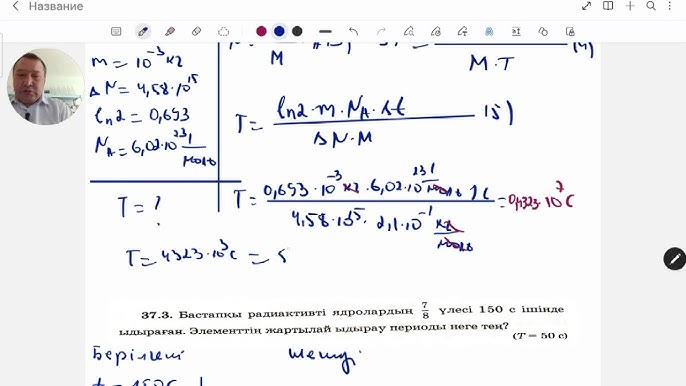 Название
m = 10⁻³ кг
ΔN = 4,58·10¹⁵
ln2 = 0,693
N_A = 6,02·10²³ 1/моль
T = ?
M
M·T
T = ln2·m·N_A·Δt / ΔN·M 15)
T = 0,693·10⁻³ кг·6,02·10²³ 1/моль 1с / 4,58·10¹⁵·2,1·10⁻¹ кг/моль = 0,4323·10⁷ с
T = 4323·10³ с =
37.3. Бастапқы радиактивті ядролардың 7/8 үлесі 150 с ішінде
ыдыраған. Элементтің жартылай ыдырау периоды неге тең?
(T = 50 с)
Берілгені